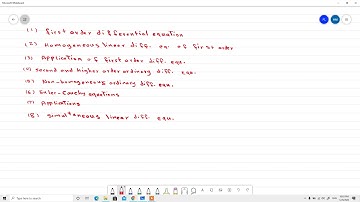 (1) First order differential equation
(2) Homogeneous linear diff. eq. of first order
(3) Application of first order diff. equ.
(4) Second and higher order ordinary diff. equ.
(5) Non-homogeneous ordinary diff. equ.
(6) Euler-Cauchy equations
(7) Applications
(8) Simultaneous linear diff. equ.
Type here to search